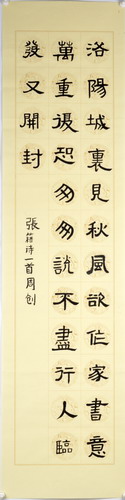 洛陽城裏見秋風欲作家書意
萬重復恐匆匆說不盡行人臨
發又開封
張籍詩一首周创